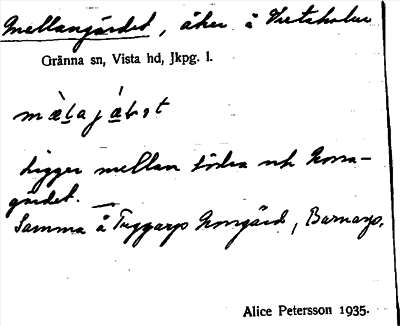 Mellangärdet, åker å Vretaholm
Gränna sn, Vista hd, Jkpg. l.
ligger mellan södra och Norra-
gärdet.
Samma å Tyggarp Norrgård, Barnarp.
Alice Petersson 1935.